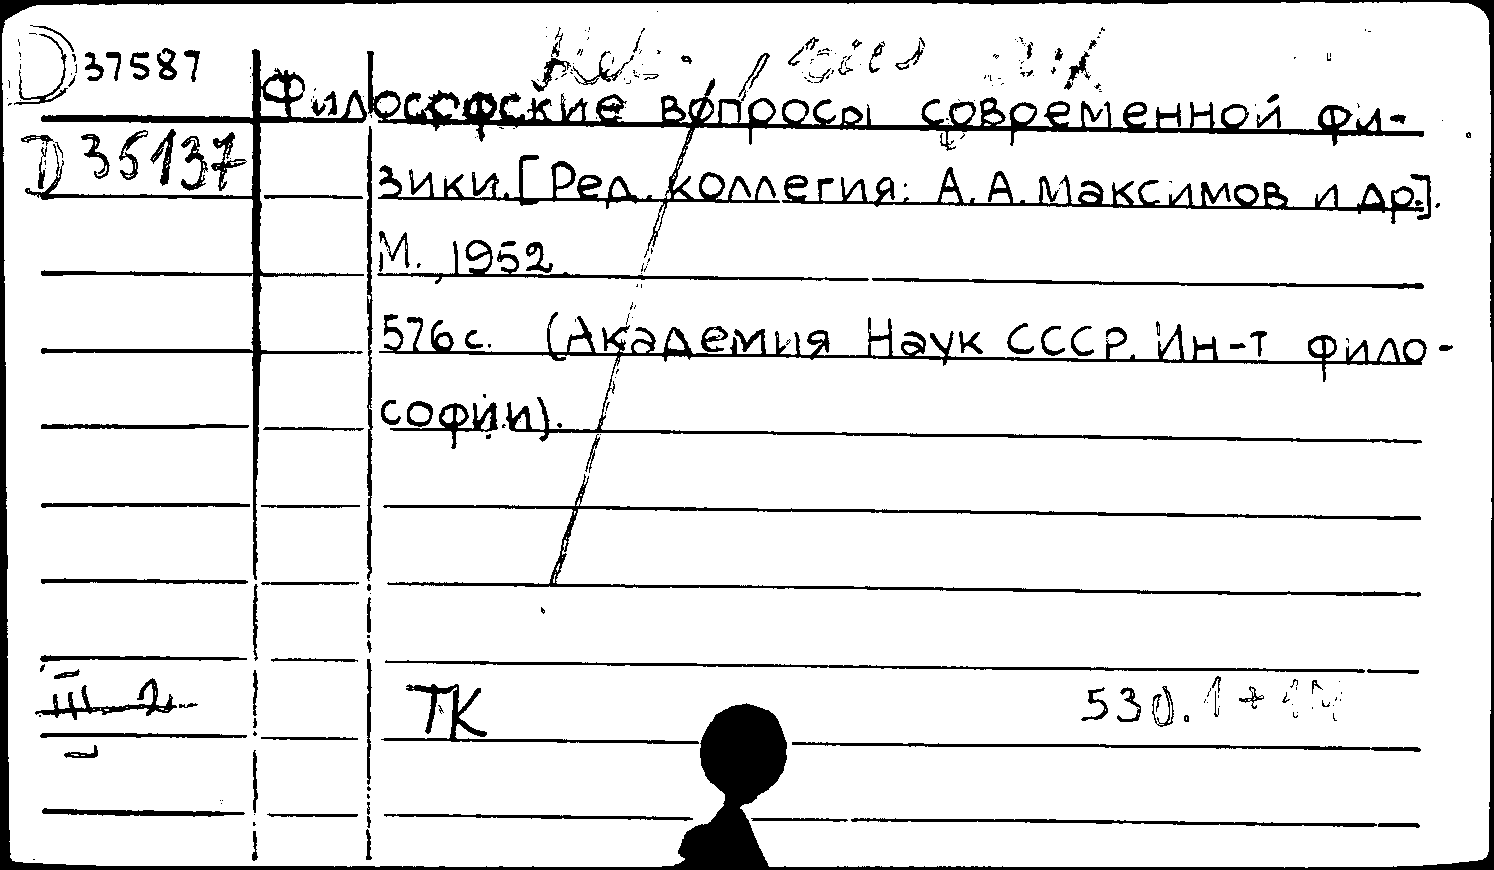 D 37587
Философские вопросы современной фи-
D 35137
зики. [Ред. коллегия: А. А. Максимов и др.].
М., 1952.
576 с. (Академия Наук СССР. Ин-т фило-
софии).
III 2
ТК 530.1+1М